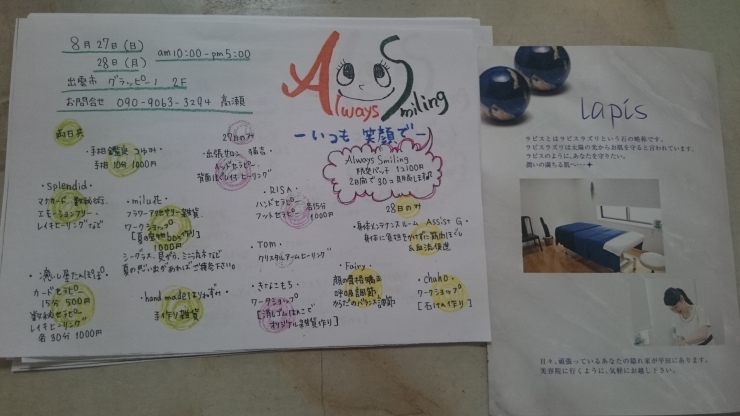 8月27日(日) am10:00-pm5:00
28日(月)
出雲市 グラッピーノ 2F
お問合せ 090-9063-3294 高瀬
Always Smiling
ーいつも 笑顔でー
Always Smiling
1コ100円
両日共
・手相鑑定
手相 10分 1000円
27日のみ
・出張サロン
ハンドセラピー
ヒーリング
・splendid・
マナカード、数秘術、
エモーションフリー、
レイキヒーリングなど
・milu花・
フラワーアクセサリー雑貨
ワークショップ
1000円
シーグラス、貝がら、ミニ流木など
夏の思い出があればご持参下さい。
・RISA・
ハンドセラピー
フットセラピー
各15分
1000円
28日のみ
・身体メンテナンスルーム Assist G・
身体に負担をかけずに筋肉ほぐし
&血流促進
・TOM・
クリスタルアームヒーリング
・癒し屋
カードセラピー
15分 500円
数秘セラピー
レイキヒーリング
各30分1000円
・hand made はりねずみ・
手作り雑貨
・きなこもち・
ワークショップ
[消しゴムはんこで
オリジナル雑貨作り]
・Fairy・
顔の骨格矯正
呼吸調節
からだのバランス調節
・chaho・
ワークショップ
[石けん作り]
lapis
ラピスとはラピスラズリという石の略称です。
ラピスラズリは太陽の光からお肌を守ると言われています。
ラピスのように、あなたを守りたい。
潤いの満ちる肌へ・・・✦
日々、頑張っているあなたの隠れ家が平田にあります。
美容院に行くように、気軽にお越し下さい。